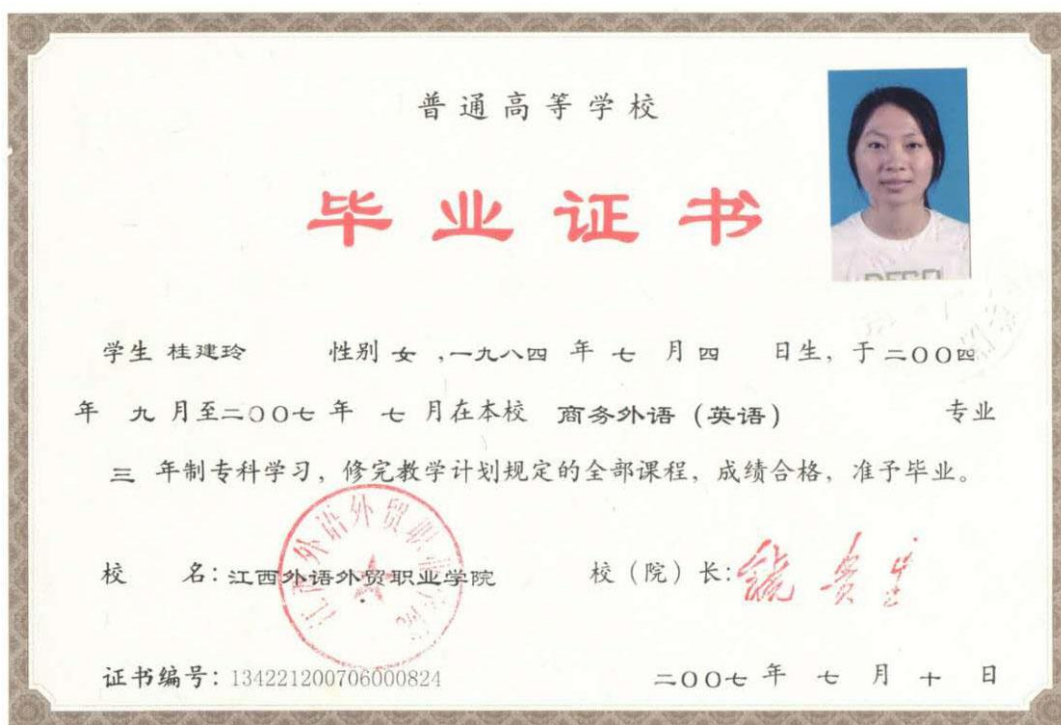 普通高等学校
毕业证书
学生 桂建玲 性别 女 ,一九八四 年 七 月 四 日生, 于二〇〇四
年 九 月至二〇〇七 年 七 月在本校 商务外语 (英语) 专业
三 年制专科学习, 修完教学计划规定的全部课程, 成绩合格, 准予毕业。
校 名: 江西外语外贸职业学院 校 (院) 长:
江西外语外贸职业学院
证书编号: 134221200706000824 二〇〇七 年 七 月 十 日